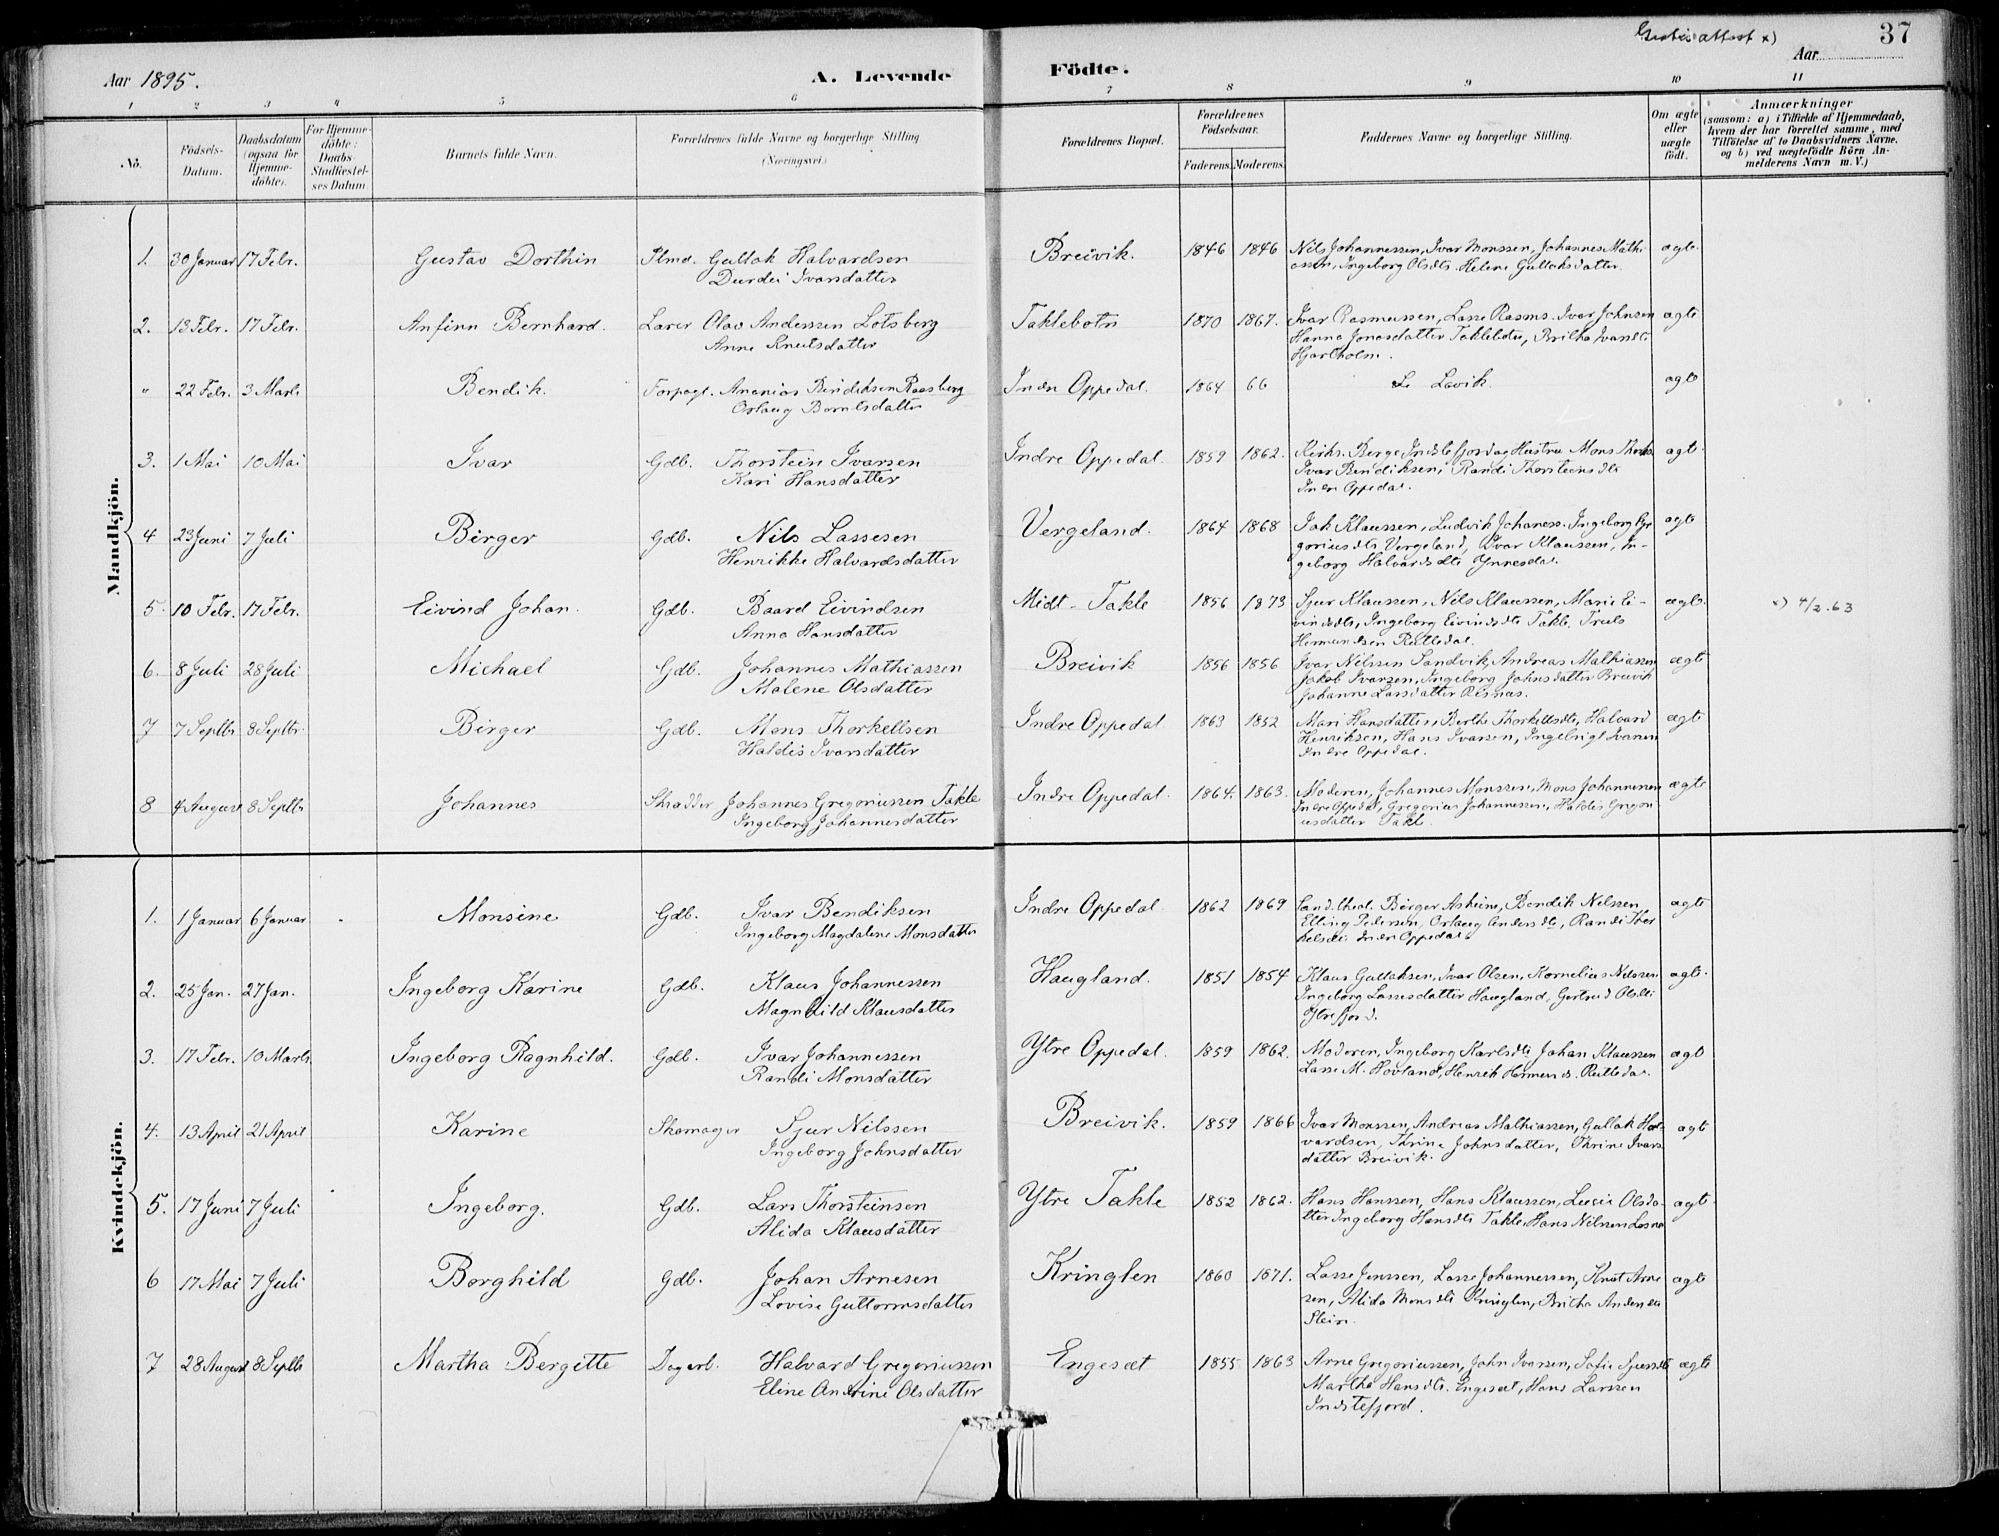 Gratis attest x)
37
Aar 1895.
A. Levende Födte.
Aar
1 2 3 4 5 6 7 8 9 10 11
No.
Födsels-
Datum.
Daabsdatum
(ogsaa for
Hjemme-
döbte).
For Hjemme-
döbte:
Daabs-
Stadfæstel-
ses Datum.
Barnets fulde Navn.
Forældrenes fulde Navne og borgerlige Stilling
(Næringsvei.)
Forældrenes Bopæl.
Forældrenes
Födselsaar.
Faderens. Moderens.
Faddernes Navne og borgerlige Stilling.
Om ægte
eller
uægte
födt.
Anmærkninger
(saasom: a) i Tilfælde af Hjemmedaab,
hvem der har forrettet samme, med
Tilföielse af to Daabsvidners Navne,
og b) ved uægtefödte Börn An-
melderens Navn m. V.)
Mandkjön.
1. 30 Januar 17 Febr. Gustav Dorthin Plmd. Gullak Halvardsen Breivik. 1846 1846 Nils Johannessen, Ivar Monssen, Johannes Mathi- ægte
Durdei Ivarsdatter
assen, Ingeborg Olsdtr. Helene Gullaksdatter
2. 13 Febr. 17 Febr. Anfinn Bernhard. Lærer Olav Anderssen Lotsberg Taklebotn 1870 1867. Ivar Rasmussen, Lasse Rasms. Ivar Johnsen ægte
Anne Knutsdatter
Hanna Jonasdatter Taklebotn, Britha Ivarsdtr
Hjartholm.
" 22 Febr. 3 Marts Bendik. Forpagt. Ananias Bendiksen Raasberg Indre Oppedal. 1864 66 Se Lavik. ægte
Orlaug Berntsdatter
3. 1 Mai 10 Mai Ivar Gdb. Thorstein Ivarsen Indre Oppedal. 1859 1862. Kirks. Berge Indstefjord og Hustru Mons Thorks. ægte
Kari Hansdatter
Ivar Bendiksen, Randi Thorsteinsdtr
Indre Oppedal.
4 23 Juni 7 Juli Birger Gdb. Nils Lassesen Vergeland. 1864 1868 Jak Klaussen, Ludvik Johaness. Ingeborg Gr- ægte
Henrikke Halvardsdatter
goriusdtr Vergeland, Ivar Klaussen, In-
geborg Halvardsdtr Ynnesdal.
5. 10 Febr. 17 Febr. Eivind Johan. Gdb. Baard Eivindsen Midt-Takle 1856 1873 Sjur Klaussen, Nils Klaussen, Marie Ei- ægte. x) 4/2.63
Anna Hansdatter
vindsdtr, Ingeborg Eivindsdtr Takle. Truls
Hermundsen Rutledal.
6. 8 Juli 28 Juli Michael Gdb. Johannes Mathiassen Breivik 1856 1856 Ivar Nilssen Sandvik, Andreas Mathiassen ægte
Malene Olsdatter
Jakob Ivarsen, Ingeborg Johnsdatter Breivik
Johanne Larsdatter Risnæs.
7 7 Septbr 8 Septbr. Birger Gdb. Mons Thorkellsen Indre Oppedal. 1863 1852 Mari Hansdatter, Berthe Thorkellsdtr, Halvard ægte
Haldis Ivarsdatter
Henriksen, Hans Ivarsen, Ingebrigt Ivarsen
Indre Oppedal.
8 4 August 8 Septbr Johannes Skrædder Johannes Gregoriussen Takle Indre Oppedal. 1864. 1863. Moderen, Johannes Monssen, Mons Johannessen ægte
Ingeborg Johannesdatter
Indre Oppedal, Gregorius Johannessen, Haldis Gregori-
usdatter Takle.
Kvindekjön.
1. 1 Januar 6 Januar Monsine Gdb. Ivar Bendiksen Indre Oppedal. 1862 1869 Cand. theol. Börger Asheim, Bendik Nilssen ægte
Ingeborg Magdalene Monsdatter
Elling Pedersen, Orlaug Andersdtr, Randi Thor-
kelsdtr Indre Oppedal.
2. 25 Jan. 27 Jan. Ingeborg Karine Gdb. Klaus Johannessen Haugland. 1851 1854 Klaus Gullaksen, Ivar Olsen, Kornelius Nilssen ægte.
Magnhild Klausdatter
Ingeborg Lassesdatter Haugland, Gertrud Olsdtr
Ytrefjord.
3. 17 Febr. 10 Marts. Ingeborg Ragnhild. Gdb. Ivar Johannessen Ytre Oppedal. 1859 1862. Moderen, Ingeborg Karlsdtr Johan Klaussen ægt
Randi Monsdatter
Lasse M. Hovland, Henrik Hermunds. Rutledal.
4. 13 April 21 April Karine Skomager Sjur Nilssen Breivik. 1859 1866 Ivar Monssen, Andreas Mathiassen, Gullak Hal- ægt
Ingeborg Johnsdatter
vardsen, Thrine Johnsdatter, Thrine Ivars-
datter Breivik.
5. 17 Juni 7 Juli Ingeborg. Gdb. Lars Thorsteinsen Ytre Takle 1852 1862. Hans Hanssen, Hans Klaussen, Lucie Olsda- ægt
Alida Klausdatter
tter Ingeborg Hansdtr Takle, Hans Nilssen Losna
6 17 Mai 7 Juli Borghild Gdb. Johan Arnesen Kringlen 1860 1871. Lasse Jenssen, Lasse Johannessen, Knut Arne- ægte
Lovise Guttormsdatter
sen, Alida Monsdtr Kringlen, Britha Andersdtr
Stein.
7 28 August 8 Septbr Martha Bergitte Dagarb. Halvard Gregoriussen Engesæt 1855 1863 Arne Gregoriussen, John Ivarsen, Sofie Sjursdtr ægte
Eline Andrine Olsdatter
Martha Hansdtr. Engesæt, Hans Larssen
Indstefjord.